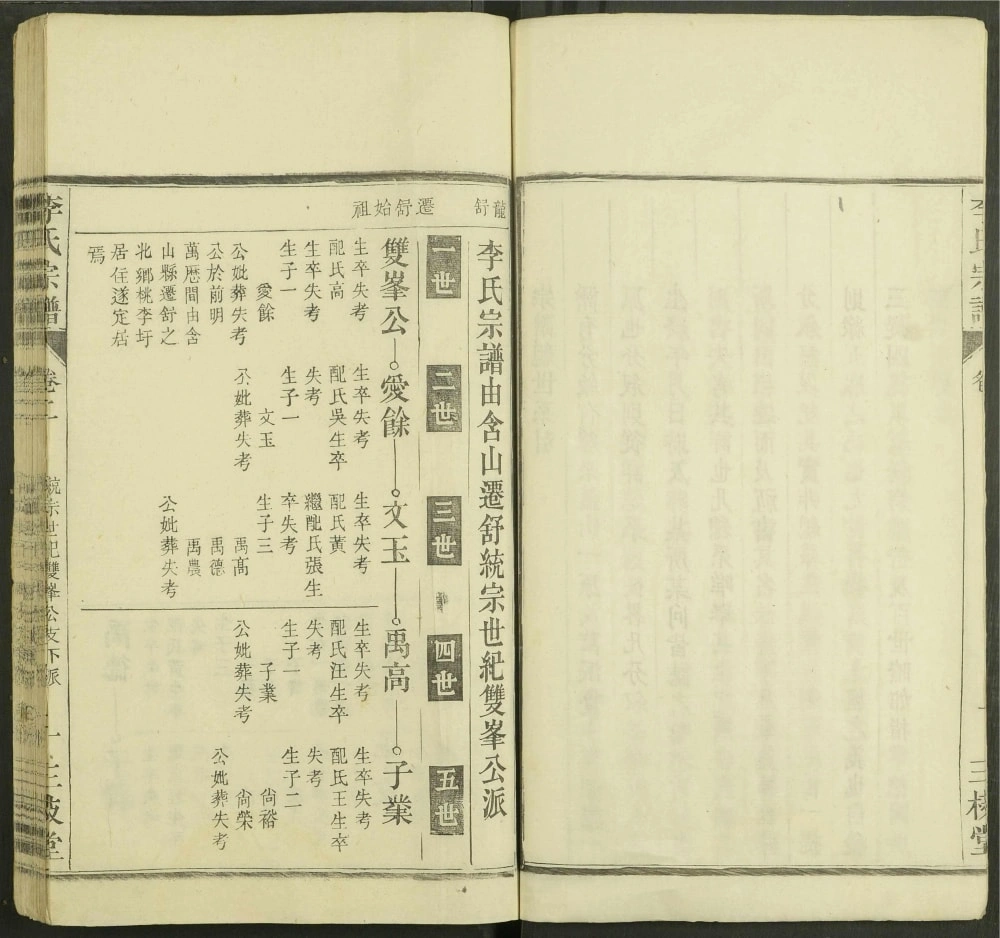 李氏宗譜
三槐堂
龍舒
遷舒始祖
李氏宗譜由含山遷舒統宗世紀雙峯公派
一世
二世
三世
四世
五世
雙峯公
愛餘
文玉
禹高
子業
生卒失考
配氏高
生卒失考
生子一
愛餘
公妣葬失考
公於前明
萬曆間由含
山縣遷舒之
北鄉桃李圩
居住遂定居
焉
生卒失考
配氏吳生卒
失考
生子一
文玉
公妣葬失考
生卒失考
配氏黃
繼配氏張生
卒失考
生子三
禹高
禹德
禹農
公妣葬失考
生卒失考
配氏汪生卒
失考
生子一
子業
公妣葬失考
生卒失考
配氏王生卒
失考
生子二
尙裕
尙榮
公妣葬失考
李氏宗譜
卷二
統宗世紀雙峯公支下派
三槐堂